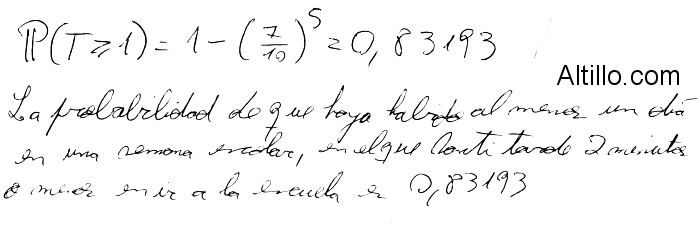 ℙ(T≥1) = 1 - (7/10)^5 = 0,83193
Altillo.com
La probabilidad de que haya habido al menos un día
en una semana escolar, en el que Santi tarde 2 minutos
o menos en ir a la escuela es 0,83193